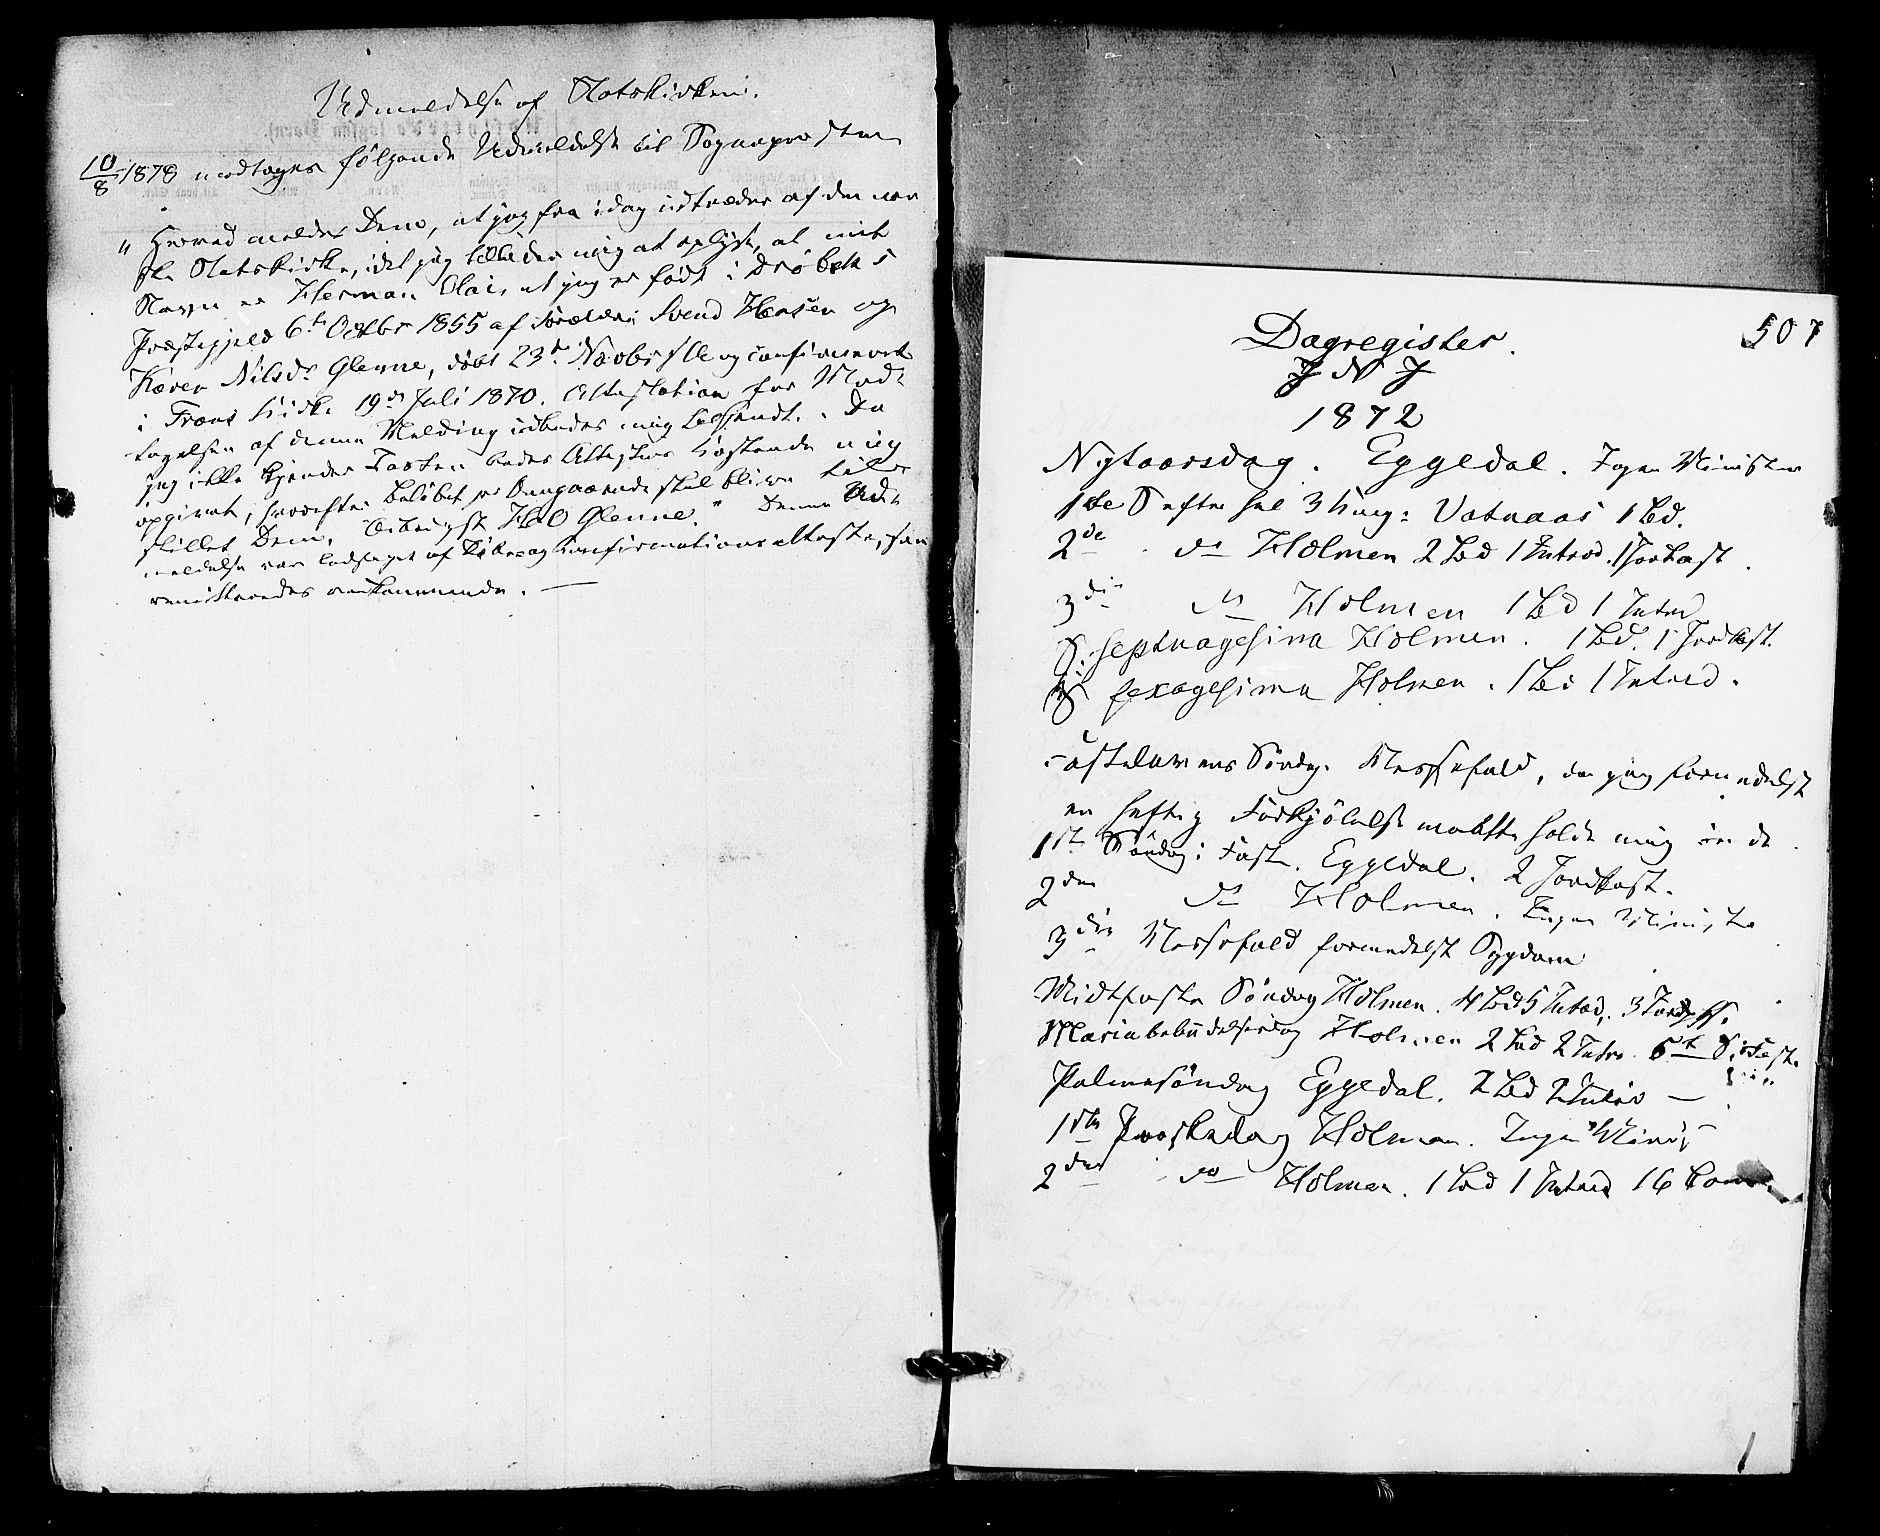 Udmeldelse af Statskirken.
10/8 1878 modtoges følgende Udmeldelse til Sognepresten
"Herved meldes Dem, at jeg fra idag udtræder af den nor
ske Statskirke, idet jeg tillader mig at oplyse, at mit
Navn er Herman Olai, at jeg er født i Drøbaks
Præstegjeld 6te Octbr 1855 af Forældre Svend Hansen og
Karen Nilsdr Glenne, døbt 23de Novbr s. A. og confirmeret
i Frons Kirke 19de Juli 1870. Attestation for Mod-
tagelsen af denne Melding udbedes mig tilsendt. Da
jeg ikke kjender Taxten bedes Attestens Kostende mig
opgivet, hvorefter Beløbet pr Omgaaende skal blive til-
stillet Dem. Ærbødigst H. O. Glenne." Denne Ud-
meldelse var ledsaget af Døbe- og Konfirmationsattester, som
remitteredes vedkommende. —
507
Dagregister.
J N J
1872
Nytaarsdag. Eggedal. Ingen Minister
1ste S efter hel 3 Kong: Vatnaas 1 Bd.
2de do Holmen 2 Bd 1 Introd. 1 Jordkast.
3die do Holmen 1 Bd 1 Introd
S. septuagesima Holmen. 1 Bd. 1 Jordkast.
S. sexagesima Holmen. 1 Bd 1 Introd.
Fastelavens Søndag. Messefald, da jeg formedelst
en heftig Forkjølelse maatte holde mig inde.
1ste Søndag i Faste. Eggedal. 2 Jordkast.
2den do Holmen. Ingen Ministe
3die Messefald formedelst Sygdom
Midtfaste Søndag Holmen. 4 Bd 5 Introd. 3 Jordpf.
Mariæ bebudelsesdag Holmen 2 Bd 2 Intro. 5te S. i Faste
Palmesøndag Eggedal. 2 Bd 2 Introd —
1ste Paaskedag Holmen. Ingen Minis
2den do Holmen. 1 Bd 1 Introd 16 Com
1